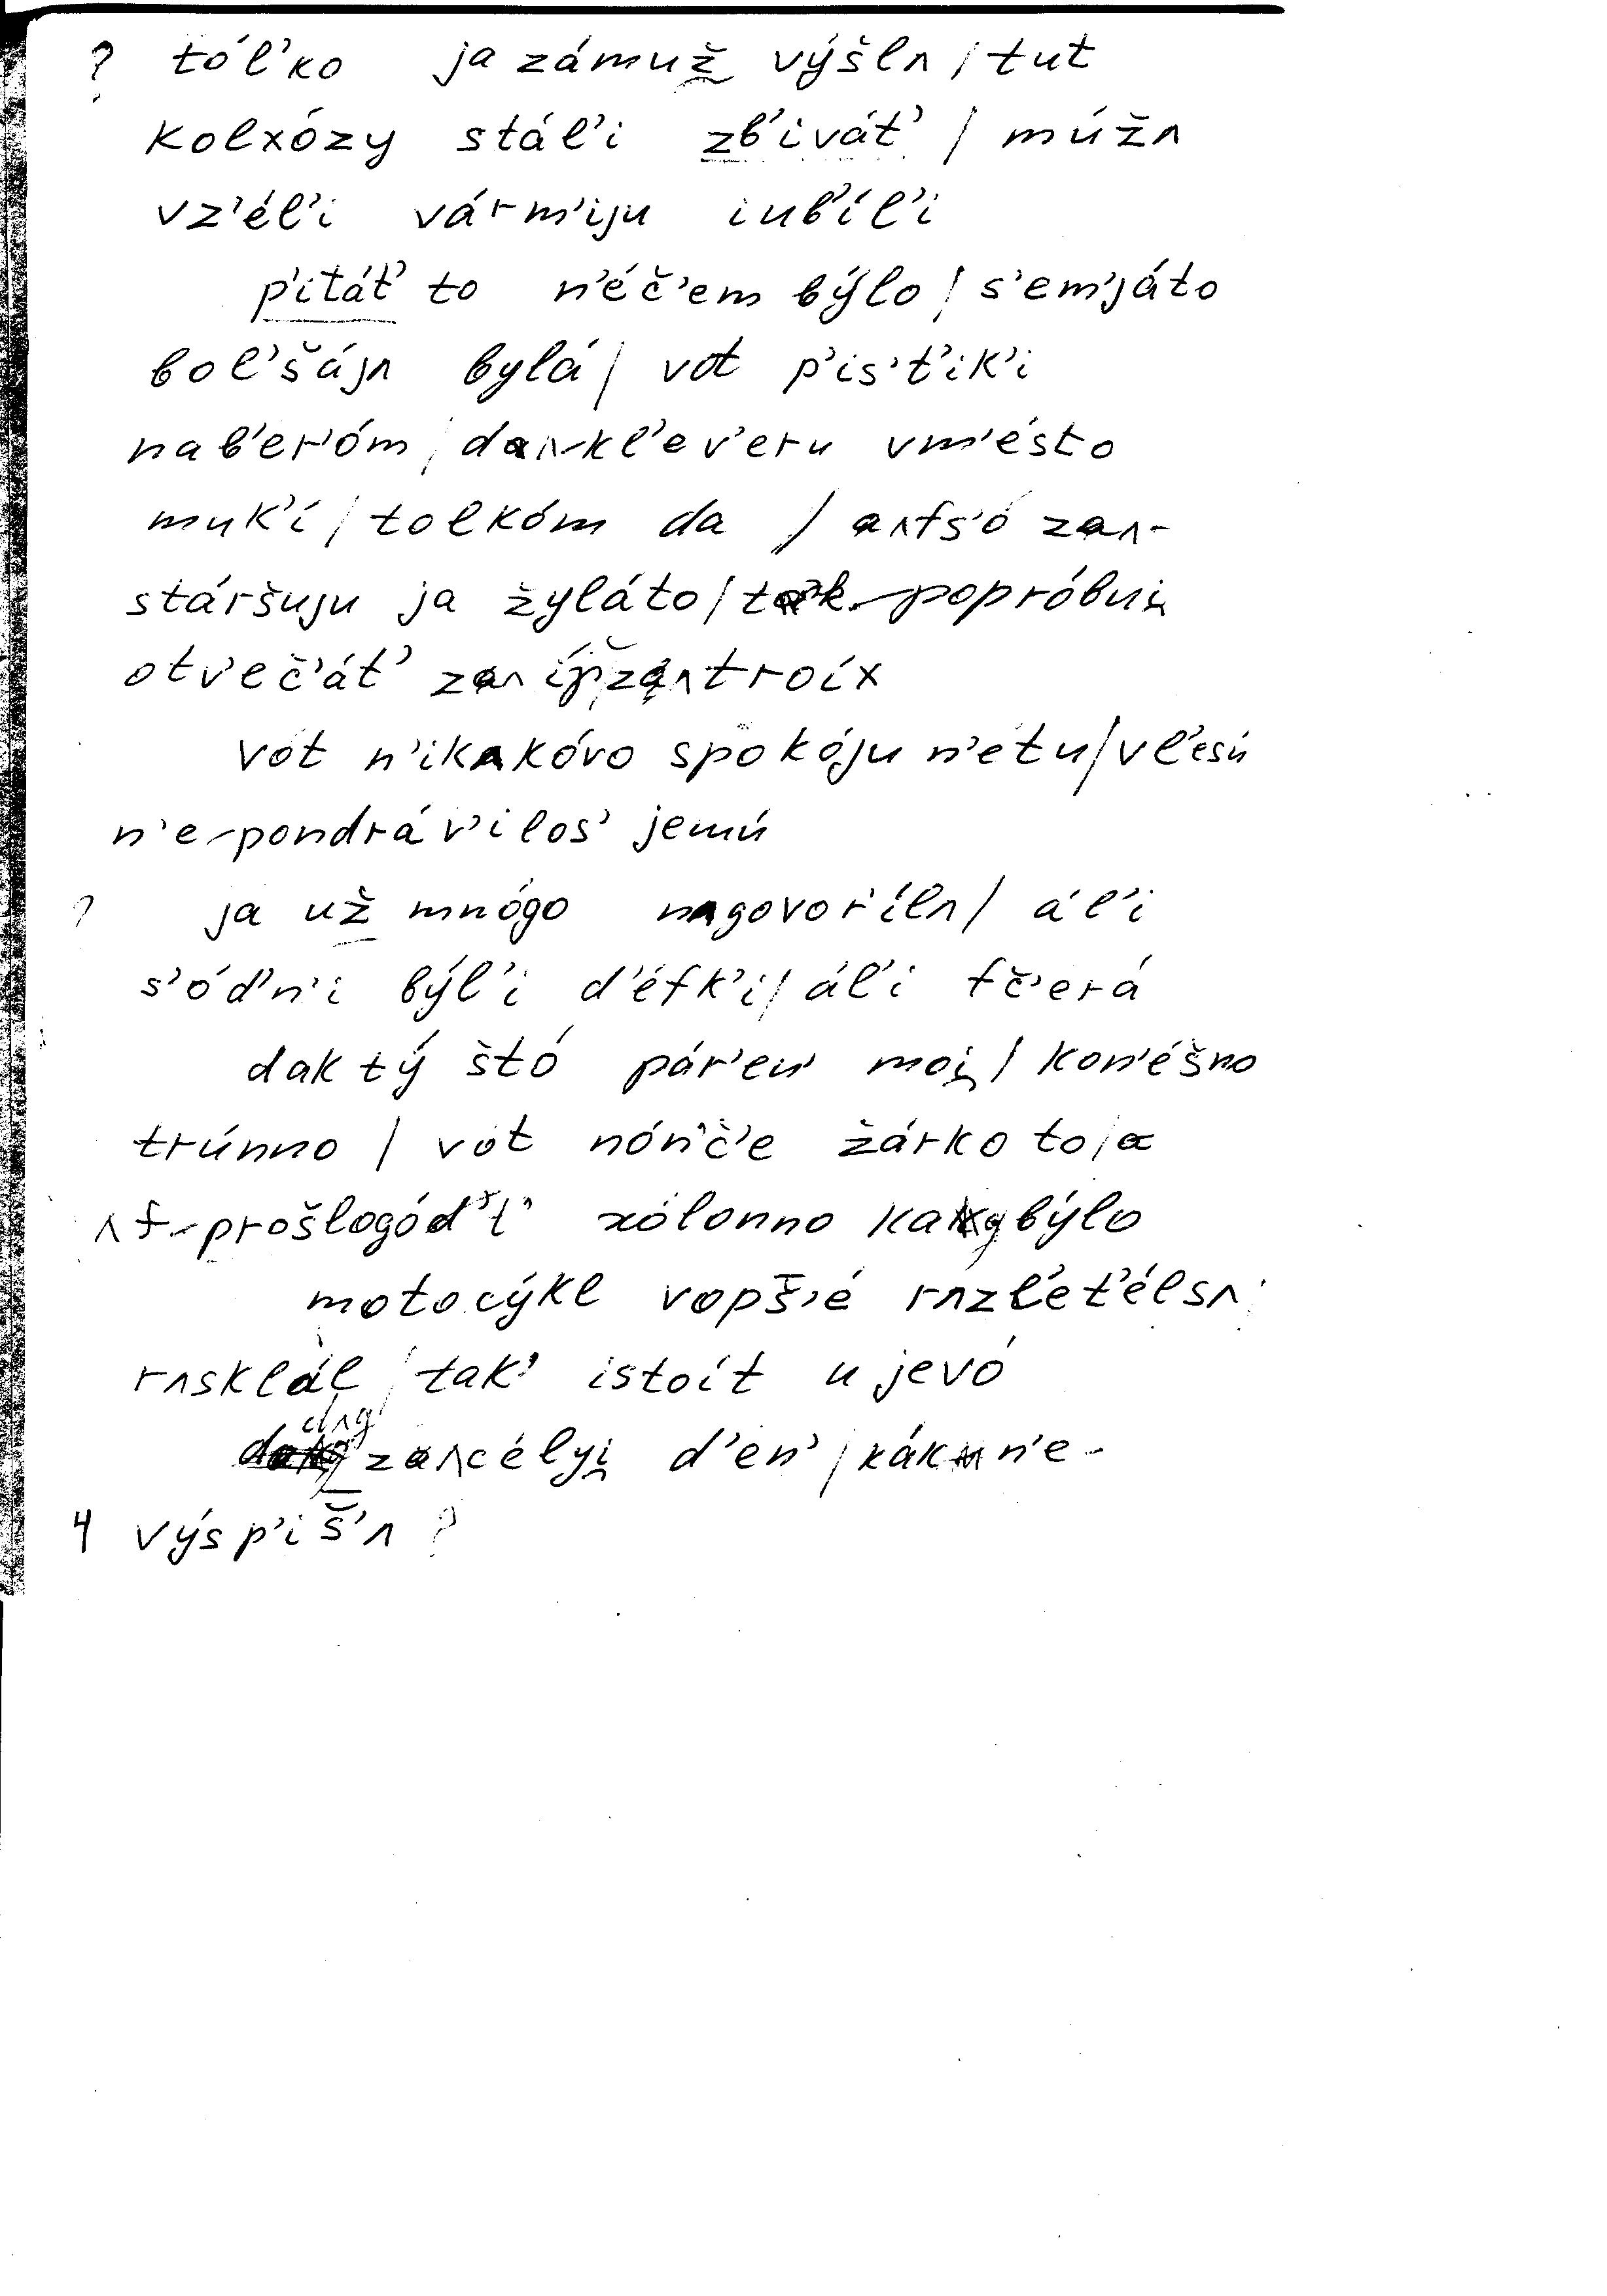 ? tól'ko ja zámuž výšlʌ / tut
kolxózy stál'i zb'ivát' / múžʌ
vz'él'i várm'iju iub'íl'i
p'itát' to n'éč'em býlo / s'em'játo
bol'šájʌ bylá / vot p'is't'ik'i
nab'er'óm / dʌ kl'ev'eru vm'ésto
muk'í / tolkóm da / ʌfs'ó zʌ-
stáršuju ja žyláto / tak popróbui̯
otv'eč'át' zʌ troíx
vot n'ikʌkóvo spokóju n'étu / vl'esú
n'e pondráv'ilos' jemú
? ja už mnógo nʌgovor'ílʌ / ál'i
s'ód'n'i býl'i d'éfk'i / ál'i fč'erá
dak tý štó pár'en' moi̯ / kon'éšno
trúnno / vot nón'č'e žárko to / a
ʌ f prošlogód'i xólonno kag býlo
motocýkl vopš'é rʌzl'et'élsʌ
rʌsklál / tak' istoít u jevó
dʌg zʌcélyi̯ d'en' / kák n'e-
4 výsp'iš'ʌ ?